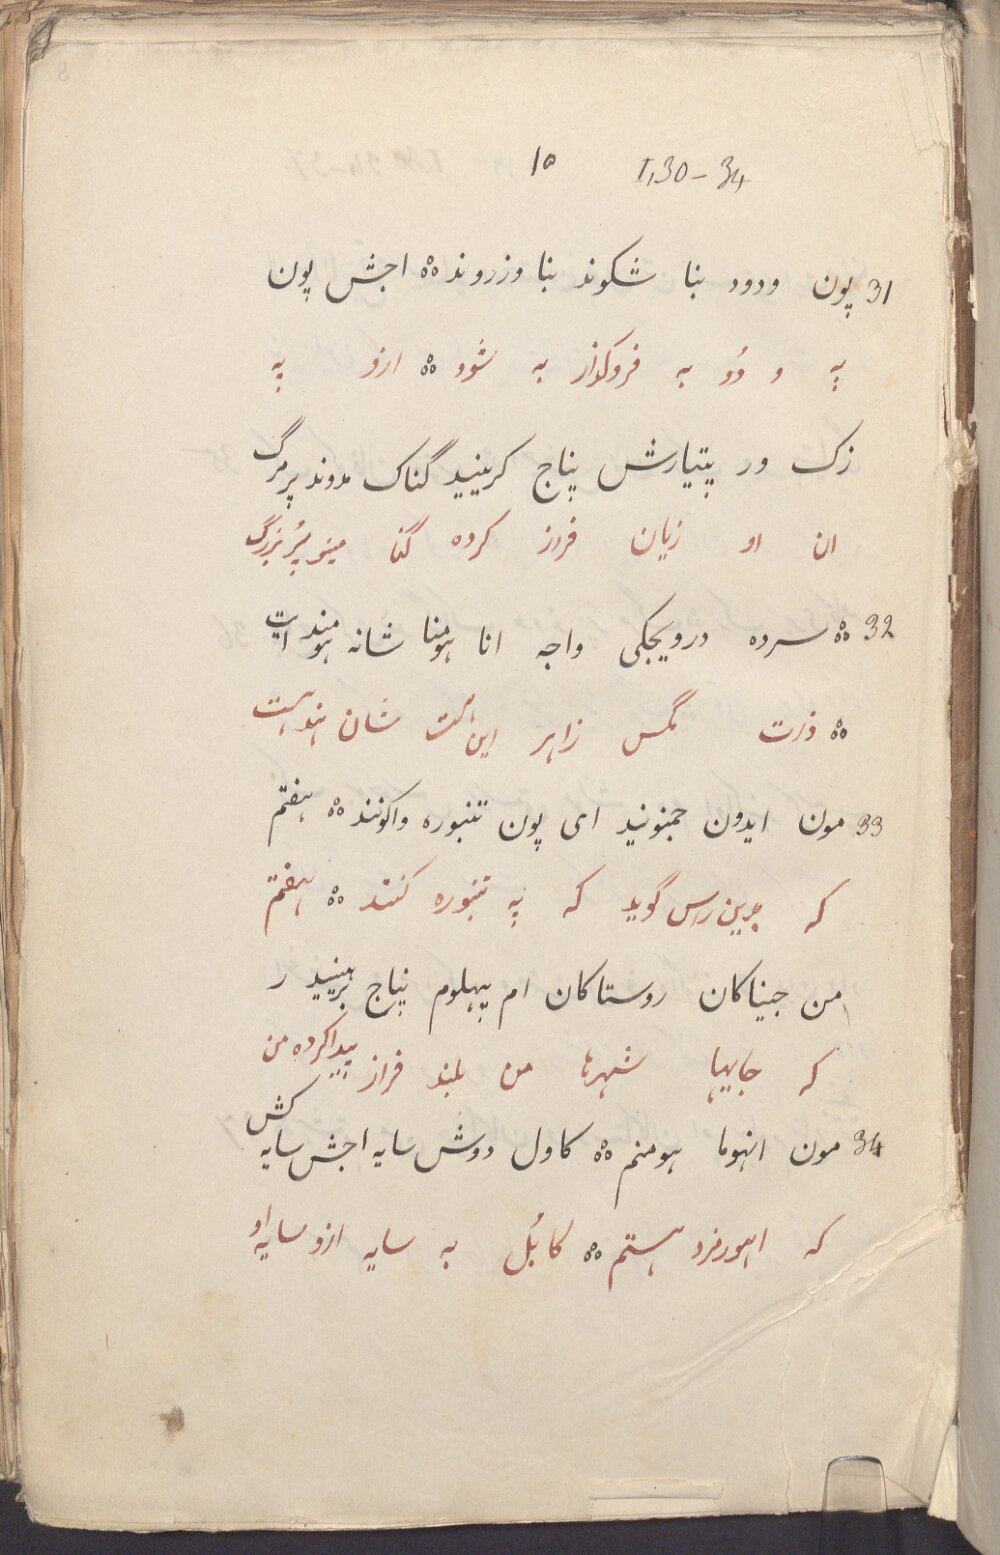 ١٥ I,30-34
31 پون ودود بنا شکوند بنا وزروند ه‍ه‍ اجش پون
په و دُو به فروگذار به شَود ه‍ه‍ ازو په
زک ور پتیارش پناج کرینید گناک مدوند پرمرگ
ان او زیان فراز کرده گنا مینو پُر بزرگ
32 ه‍ه‍ سرده درویجکی واجه انا هومنا شانه هومند ایت
ه‍ه‍ ذرت مگس زاهر این هست شان هند هست
33 مون ایدون جمنونید ای پون تنبوره واکونند ه‍ه‍ هفتم
که گوید که په تنبوره کنند ه‍ه‍ هفتم
من جیناکان روستاکان ام پهلوم پناج برینید ر
که جایها شهرها من بلند فراز پیدا کرده من
34 مون انهوما هومنم ه‍ه‍ کاول دوش سایه اجش سایه کش
که اهورمزد هستم ه‍ه‍ کابُل به سایه ازو سایه او